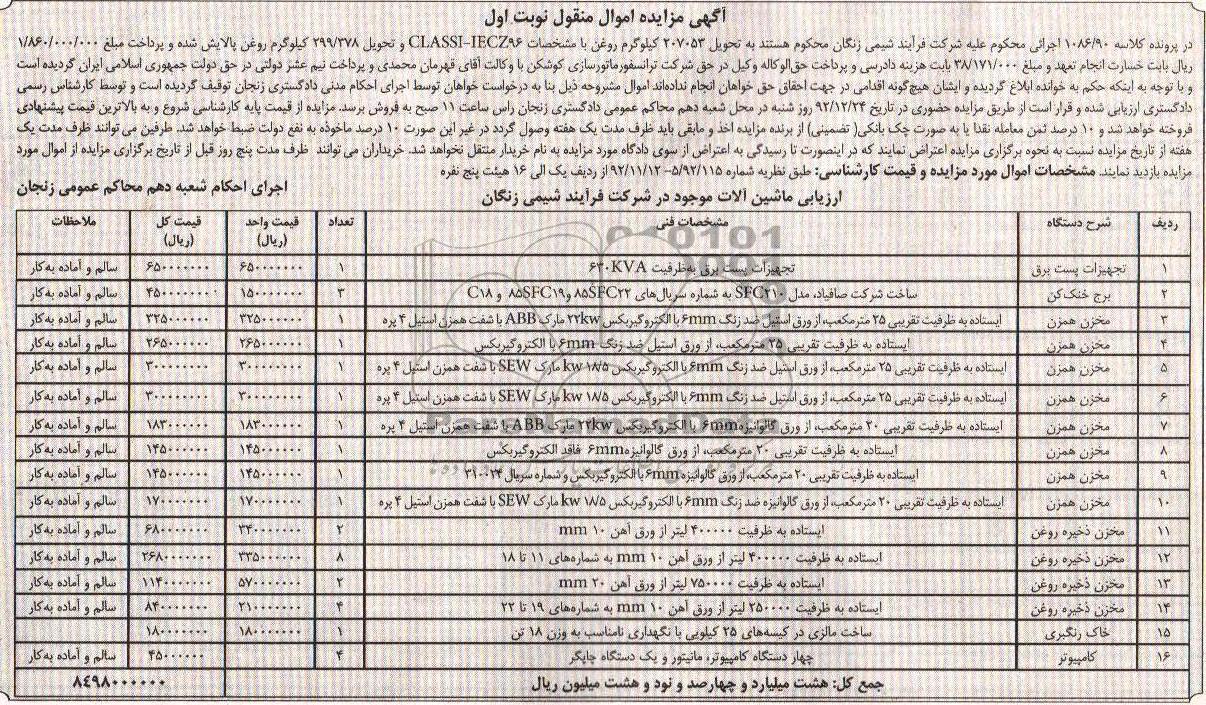 آگهی مزایده اموال منقول نوبت اول
در پرونده کلاسه ۱۰۸۶/۹۰ اجرائی محکوم علیه شرکت فرآیند شیمی زنگان محکوم هستند به تحویل ۲۰۷۰۵۳ کیلوگرم روغن با مشخصات CLASSI-IECZ۹۶ و تحویل ۲۹۹/۳۷۸ کیلوگرم روغن پالایش شده و پرداخت مبلغ ۱/۸۶۰/۰۰۰/۰۰۰
ریال بابت خسارت انجام تعهد و مبلغ ۳۸/۱۷۱/۰۰۰ بابت هزینه دادرسی و پرداخت حق‌الوکاله وکیل در حق شرکت ترانسفورماتورسازی کوشکن با وکالت آقای قهرمان محمدی و پرداخت نیم عشر دولتی در حق دولت جمهوری اسلامی ایران گردیده است
و با توجه به اینکه حکم به خوانده ابلاغ گردیده و ایشان هیچ‌گونه اقدامی در جهت احقاق حق خواهان انجام نداده‌اند اموال مشروحه ذیل بنا به درخواست خواهان توسط اجرای احکام مدنی دادگستری زنجان توقیف گردیده است و توسط کارشناس رسمی
دادگستری ارزیابی شده و قرار است از طریق مزایده حضوری در تاریخ ۹۲/۱۲/۲۴ روز شنبه در محل شعبه دهم محاکم عمومی دادگستری زنجان راس ساعت ۱۱ صبح به فروش برسد. مزایده از قیمت پایه کارشناسی شروع و به بالاترین قیمت پیشنهادی
فروخته خواهد شد و ۱۰ درصد ثمن معامله نقدا یا به صورت چک بانکی( تضمینی) از برنده مزایده اخذ و مابقی باید ظرف مدت یک هفته وصول گردد در غیر این صورت ۱۰ درصد ماخوذه به نفع دولت ضبط خواهد شد. طرفین می توانند ظرف مدت یک
هفته از تاریخ مزایده نسبت به نحوه برگزاری مزایده اعتراض نمایند که در اینصورت تا رسیدگی به اعتراض از سوی دادگاه مورد مزایده به نام خریدار منتقل نخواهد شد. خریداران می توانند ظرف مدت پنج روز قبل از تاریخ برگزاری مزایده از اموال مورد
مزایده بازدید نمایند. مشخصات اموال مورد مزایده و قیمت کارشناسی: طبق نظریه شماره ۵/۹۲/۱۱۵- ۹۲/۱۱/۱۲ از ردیف یک الی ۱۶ هیئت پنج نفره
اجرای احکام شعبه دهم محاکم عمومی زنجان
ارزیابی ماشین آلات موجود در شرکت فرآیند شیمی زنگان
ردیف شرح دستگاه مشخصات فنی تعداد قیمت واحد (ریال) قیمت کل (ریال) ملاحظات
۱ تجهیزات پست برق تجهیزات پست برق به‌ظرفیت ۶۳۰KVA ۱ ۶۵۰۰۰۰۰۰۰ ۶۵۰۰۰۰۰۰۰ سالم و آماده به‌کار
۲ برج خنک‌کن ساخت شرکت صافیاد، مدل SFC۲۱۰ به شماره سریال‌های ۸۵SFC۲۲ و ۸۵SFC۱۹ و C۱۸ ۳ ۱۵۰۰۰۰۰۰۰ ۴۵۰۰۰۰۰۰۰ سالم و آماده به‌کار
۳ مخزن همزن ایستاده به ظرفیت تقریبی ۲۵ مترمکعب، از ورق استیل ضد زنگ ۶mm با الکتروگیربکس ۲۲kw مارک ABB با شفت همزن استیل ۴ پره ۱ ۳۲۵۰۰۰۰۰۰ ۳۲۵۰۰۰۰۰۰ سالم و آماده به‌کار
۴ مخزن همزن ایستاده به ظرفیت تقریبی ۲۵ مترمکعب، از ورق استیل ضد زنگ ۶mm با الکتروگیربکس ۱ ۲۶۵۰۰۰۰۰۰ ۲۶۵۰۰۰۰۰۰ سالم و آماده به‌کار
۵ مخزن همزن ایستاده به ظرفیت تقریبی ۲۵ مترمکعب، از ورق استیل ضد زنگ ۶mm با الکتروگیربکس ۱۸/۵ kw مارک SEW با شفت همزن استیل ۴ پره ۱ ۳۰۰۰۰۰۰۰۰ ۳۰۰۰۰۰۰۰۰ سالم و آماده به‌کار
۶ مخزن همزن ایستاده به ظرفیت تقریبی ۲۵ مترمکعب، از ورق استیل ضد زنگ ۶mm با الکتروگیربکس ۱۸/۵ kw مارک SEW با شفت همزن استیل ۴ پره ۱ ۳۰۰۰۰۰۰۰۰ ۳۰۰۰۰۰۰۰۰ سالم و آماده به‌کار
۷ مخزن همزن ایستاده به ظرفیت تقریبی ۲۰ مترمکعب، از ورق گالوانیزه ۶mm با الکتروگیربکس ۲۲kw مارک ABB با شفت همزن استیل ۴ پره ۱ ۱۸۳۰۰۰۰۰۰ ۱۸۳۰۰۰۰۰۰ سالم و آماده به‌کار
۸ مخزن همزن ایستاده به ظرفیت تقریبی ۲۰ مترمکعب، از ورق گالوانیزه ۶mm فاقد الکتروگیربکس ۱ ۱۴۵۰۰۰۰۰۰ ۱۴۵۰۰۰۰۰۰ سالم و آماده به‌کار
۹ مخزن همزن ایستاده به ظرفیت تقریبی ۲۰ مترمکعب، از ورق گالوانیزه ۶mm با الکتروگیربکس و شماره سریال ۳۱۰۰۲۴ ۱ ۱۴۵۰۰۰۰۰۰ ۱۴۵۰۰۰۰۰۰ سالم و آماده به‌کار
۱۰ مخزن همزن ایستاده به ظرفیت تقریبی ۲۰ مترمکعب، از ورق گالوانیزه ضد زنگ ۶mm با الکتروگیربکس ۱۸/۵ kw مارک SEW با شفت همزن استیل ۴ پره ۱ ۱۷۰۰۰۰۰۰۰ ۱۷۰۰۰۰۰۰۰ سالم و آماده به‌کار
۱۱ مخزن ذخیره روغن ایستاده به ظرفیت ۴۰۰۰۰۰ لیتر از ورق آهن ۱۰ mm ۲ ۳۴۰۰۰۰۰۰۰ ۶۸۰۰۰۰۰۰۰ سالم و آماده به‌کار
۱۲ مخزن ذخیره روغن ایستاده به ظرفیت ۴۰۰۰۰۰ لیتر از ورق آهن ۱۰ mm به شماره‌های ۱۱ تا ۱۸ ۸ ۳۳۵۰۰۰۰۰۰ ۲۶۸۰۰۰۰۰۰۰ سالم و آماده به‌کار
۱۳ مخزن ذخیره روغن ایستاده به ظرفیت ۷۵۰۰۰۰ لیتر از ورق آهن ۲۰ mm ۲ ۵۷۰۰۰۰۰۰۰ ۱۱۴۰۰۰۰۰۰۰ سالم و آماده به‌کار
۱۴ مخزن ذخیره روغن ایستاده به ظرفیت ۲۵۰۰۰۰ لیتر از ورق آهن ۱۰ mm به شماره‌های ۱۹ تا ۲۲ ۴ ۲۱۰۰۰۰۰۰۰ ۸۴۰۰۰۰۰۰۰ سالم و آماده به‌کار
۱۵ خاک رنگبری ساخت مالزی در کیسه‌های ۲۵ کیلویی با نگهداری نامناسب به وزن ۱۸ تن ۱ ۱۸۰۰۰۰۰۰۰ ۱۸۰۰۰۰۰۰۰
۱۶ کامپیوتر چهار دستگاه کامپیوتر، مانیتور و یک دستگاه چاپگر ۴ ۴۵۰۰۰۰۰۰ سالم و آماده به‌کار
جمع کل: هشت میلیارد و چهارصد و نود و هشت میلیون ریال ۸۴۹۸۰۰۰۰۰۰
ParsNamadData